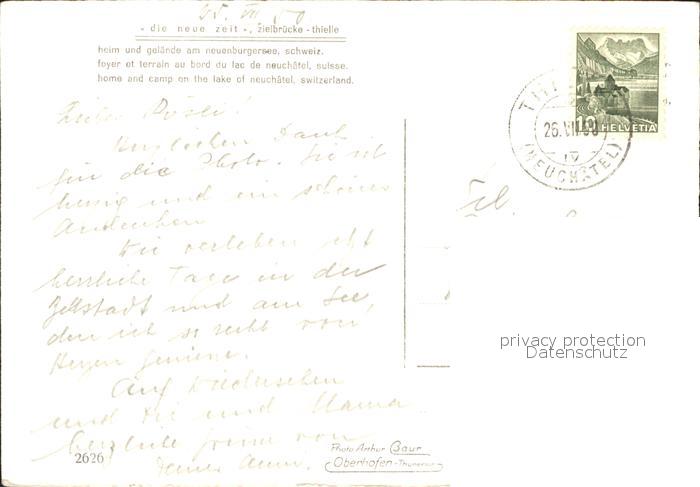 25. VII 50
« die neue zeit », zielbrücke - thielle
heim und gelände am neuenburgersee, schweiz.
foyer et terrain au bord du lac de neuchâtel, suisse.
home and camp on the lake of neuchâtel, switzerland.
Liebes Rösli!
Herzlichen Dank
für die Photo. Sie ist
herzig und ein schönes
Andenken
Wir verleben jetzt
herrliche Tage in der
Zeltstadt und am See,
den ich so recht von
Herzen geniesse.
Auf Wiedersehen
und Dir und Mama
herzliche Grüsse von
Deiner
2626
Photo Arthur Baur
Oberhofen - Thunersee
26. VII 50
IV
(NEUCHÂTEL)
10 HELVETIA
privacy protection
Datenschutz